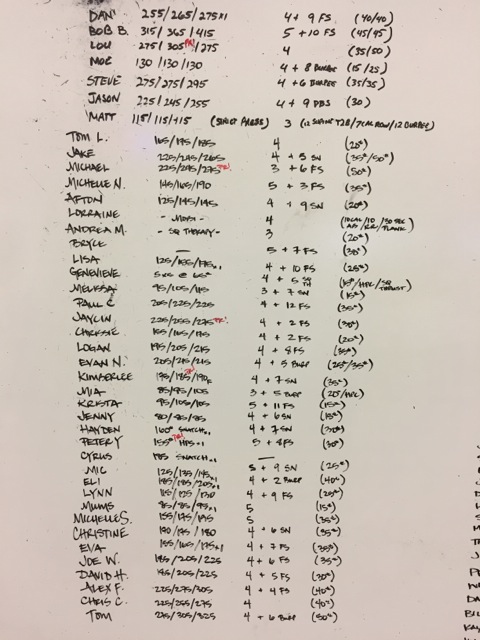 DAN 255/265/275x1 4 + 9 FS (40/40)
BOB B. 315/365/415 5 + 10 FS (45/95)
LOU 275/305 PR/275 4 (35/50)
MOE 130/130/130 4 + 8 BURPEE (15/25)
STEVE 275/275/295 4 + 6 BURPEE (35/35)
JASON 225/245/255 4 + 9 DBS (30)
MATT 115/115/115 (STRICT PRESS) 3 (12 SUPINE T2B/7CAL ROW/12 BURPEE)
TOM L. 165/175/185 4 (20#)
JAKE 225/245/265 4 + 5 SN (35#/50#)
MICHAEL 225/245/275 PR 3 + 6 FS (50#)
MICHELLE N. 145/165/190 5 + 3 FS (35#)
AFTON 125/145/145 4 + 9 SN (20#)
LORRAINE - MOBI - 4
ANDREA M. - SQ THERAPY - 3 (20#)
BRYCE — 5 + 7 FS (35#)
LISA 4 + 10 FS (25#)
GENEVIEVE 5x5 @ 65# 4 + 5
MELISSA 95/105/115 3 + 7 SN (15#)
PAUL C 205/225/225 4 + 12 FS (35#)
JAYLIN 225/255/275 PR 4 + 2 FS (30#)
CHRISSIE 155/165/175 4 + 2 FS (20#)
LOGAN 195/205/215 4 + 8 FS (35#)
EVAN N. 205/215/215 4 + 5 BURP (25#/35#)
KIMBERLEE PR 4 + 7 SN (35#)
MIA 85/95/105 3 + 5 BURP
KRISTA 95/105/105 5 + 11 FS (15#)
JENNY 80/85/85 4 + 6 SN (15#)
HAYDEN 160# SNATCH 4 + 7 SN (30#)
PETER Y 155# PR HPS x1 5 + 8 FS (30#)
CYRUS 185 SNATCH x1 —
MIC 125/135/145x1 5 + 9 SN (25#)
ELI 185/185/205x1 4 + 2 BURP (40#)
LYNN 115/125/130 4 + 9 FS (25#)
MUMS 85/85/95x1 5 (15#)
MICHELLE S. 155/175/195 5 (35#)
CHRISTINE 190/175/180 4 + 6 SN (35#)
EVA 155/165/175x1 4 + 7 FS (35#)
JOE W. 185/205/225 4 + 6 FS (35#)
DAVID H. 185/205/225 4 + 5 FS (30#)
ALEX F. 225/275/305 4 + 4 FS (40#)
CHRIS C. 225/255/275 4 (40#)
TOM 275/305/325 4 + 6 BURP (50#)